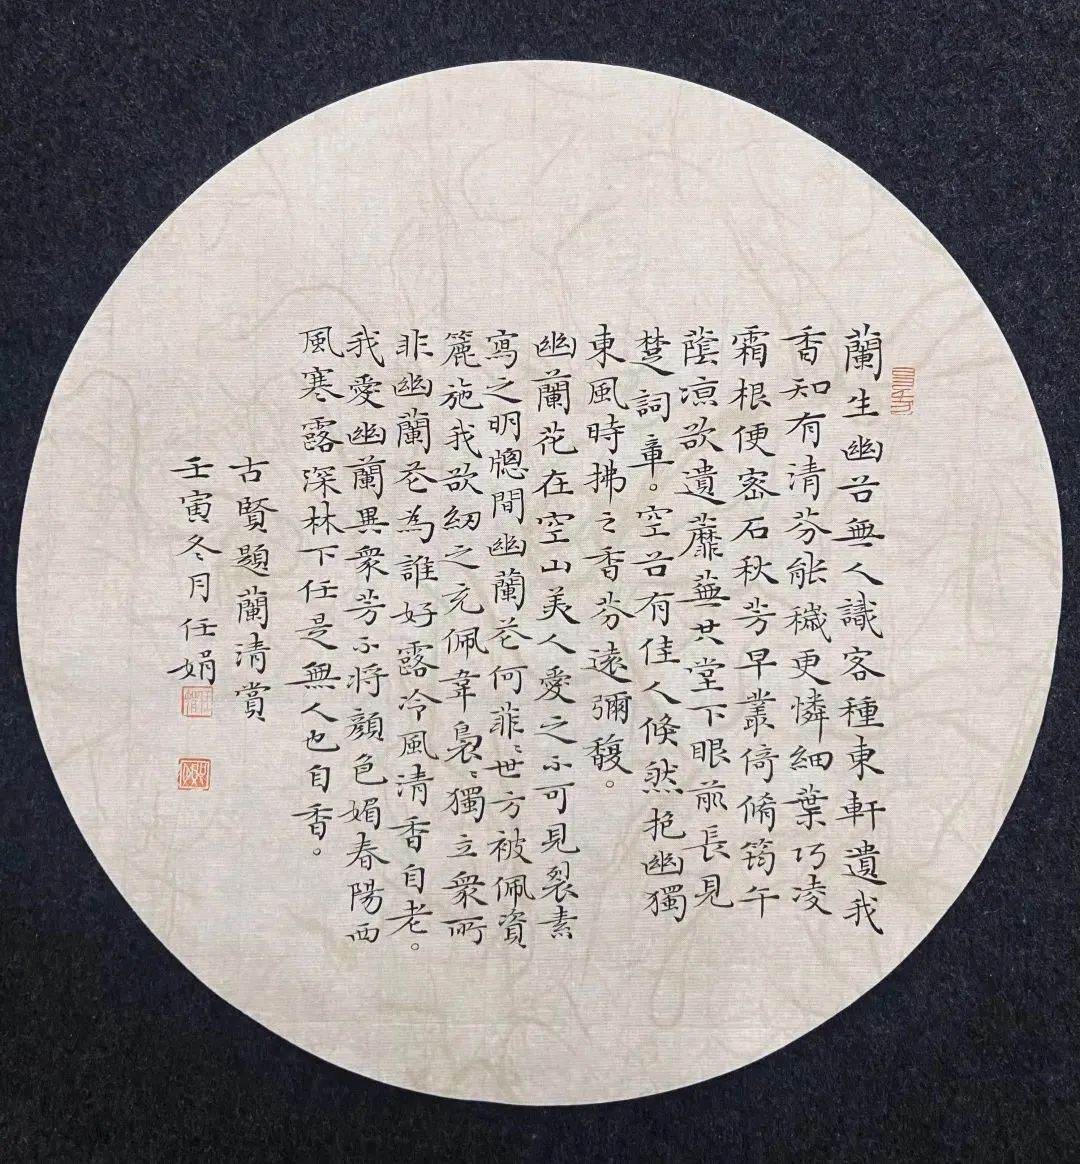 蘭生幽谷無人識客種東軒遺我
香知有清芬能穢更憐細葉巧凌
霜根便密石秋芳早叢倚脩筠午
蔭凉欲遺蘼蕪共堂下眼前長見
楚詞章。空谷有佳人倏然抱幽獨
東風時拂之香芬遠彌馥。
幽蘭花在空山美人愛之不可見裂素
寫之明牕間幽蘭花何菲〻世方被佩資
簏施我欲紉之充佩韋裊〻獨立衆所
非幽蘭花為誰好露冷風清香自老。
我愛幽蘭異衆芳不將顏色媚春陽西
風寒露深林下任是無人也自香。
古賢題蘭清賞
壬寅冬月任娟